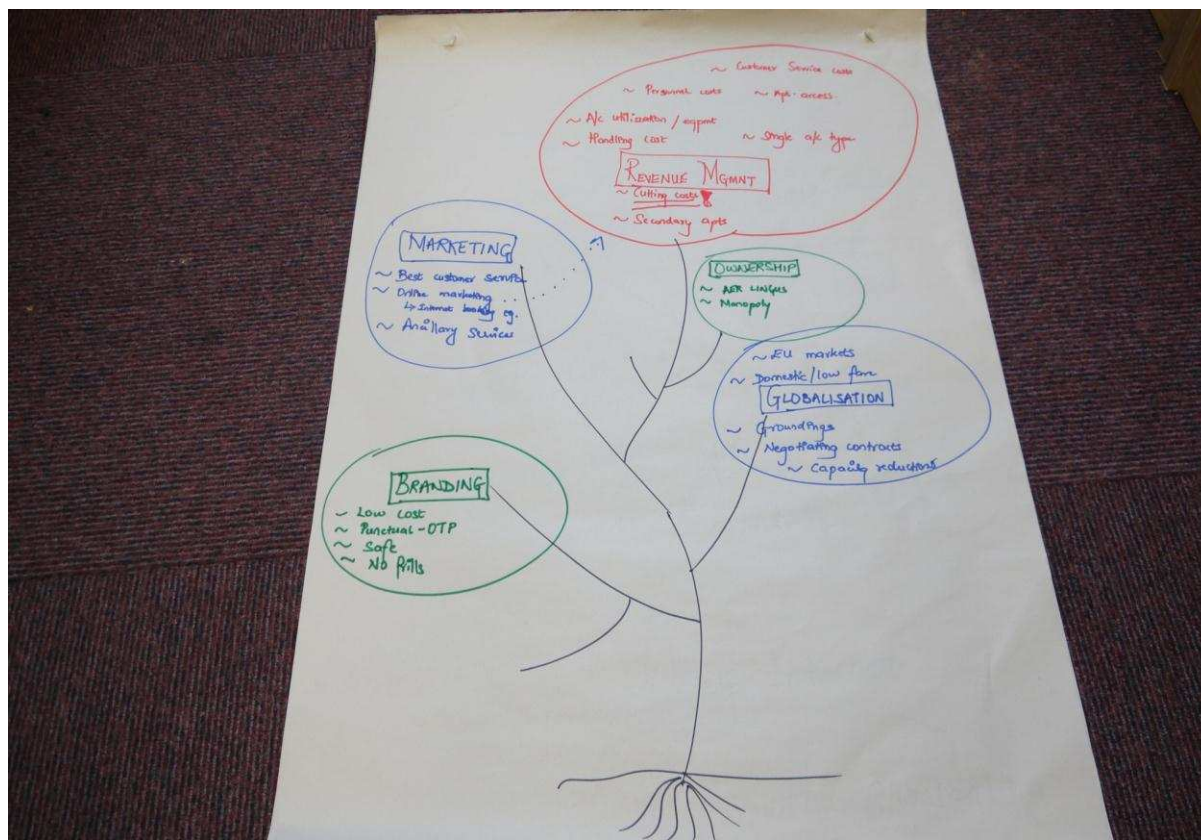 ~ Customer Service costs
~ Personnel costs
~ Apt. access.
~ A/c utilization / eqpmt
~ Handling cost
~ Single a/c type
REVENUE MGMNT
~ Cutting costs
~ Secondary apts
MARKETING
~ Best customer service
~ Online marketing ...
↳ Internet booking eg.
~ Ancillary Services
OWNERSHIP
~ AER LINGUS
~ Monopoly
~ EU markets
~ Domestic/low fare
GLOBALISATION
~ Groundings
~ Negotiating contracts
~ Capacity reductions
BRANDING
~ Low cost
~ Punctual - OTP
~ Safe
~ No frills